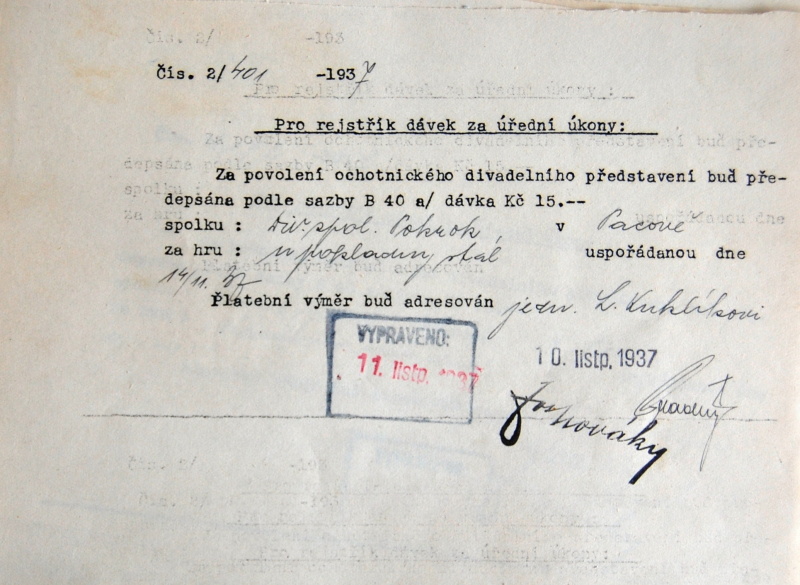 Čís. 2/401 -1937
Pro rejstřík dávek za úřední úkony:
Za povolení ochotnického divadelního představení buď pře-
depsána podle sazby B 40 a/ dávka Kč 15.--
spolku : Div. spol. Pokrok, v Pacově
za hru : u pokladny stál uspořádanou dne
14/11. 37
Platební výměr buď adresován jedn. L. Kuklíkovi
VYPRAVENO:
10. listp. 1937
11. listp. 1937